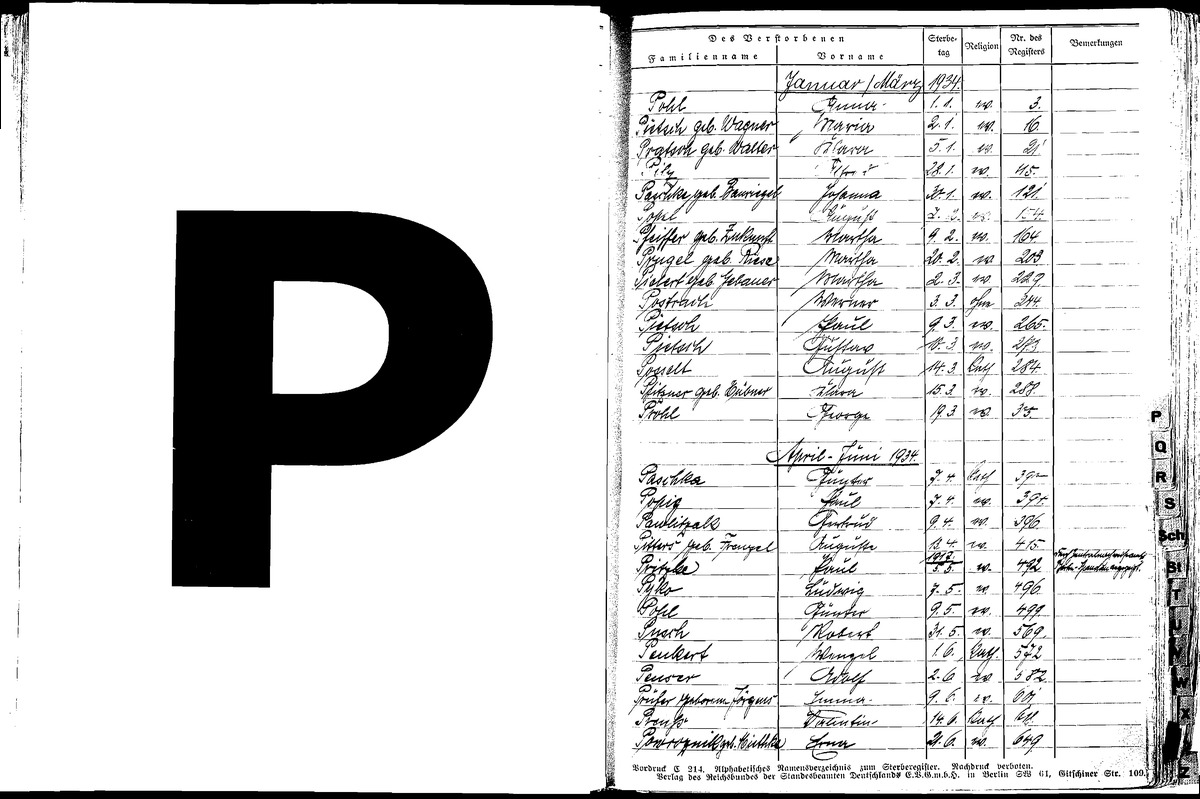 P
Des Verstorbenen Sterbe-tag Religion Nr. des Registers Bemerkungen
Familienname Vorname
Januar/März 1934.
Pohl Anna 1.1. ev. 3.
Pietsch geb. Wagner Maria 2.1. ev. 16.
Pratsch geb. Walter Klara 5.1. ev. 21.
Pilz Alfred 28.1. ev. 45.
Paschke geb. Johanna 30.1. ev. 121.
Popel August 2. ev. 154.
Pfeiffer geb. Martha 9.2. ev. 164
Prügel geb. Riese Martha 20.2. ev. 203
geb. Gebauer Martha 2.3. ev. 229.
Postrach Werner 3.3. ohne 244.
Pietsch Paul 9.3. ev. 265.
Pietsch Gustav 10.3 ev. 273
Posselt August 14.3. Kath 284.
Pfitzner geb. Hübner Klara 15.3. ev. 288.
Pröhl George 19.3 ev.
April-Juni 1934.
Paschka Günter 7.4. Kath
Popig Paul 7.4. ev. 394.
Pawlitzak Gertrud 9.4. ev. 396.
geb. Frenzel Auguste 13.4. ev. 415.
Pritzke Paul 1917. 5.5. ev. 492
Pyko Ludwig 7.5. ev. 496.
Pohl Günter 9.5. ev. 499.
Pusch Robert 31.5. ev. 569.
Penkert Wenzel 1.6. Kath. 572
Penser Adolf 2.6 ev 582.
Prüfer geborene Jörgens Emma 9.6. ev.
Valentin 14.6. Kath
geb. Erna 21.6. ev. 649
Vordruck C 214. Alphabetisches Namensverzeichnis zum Sterberegister. Nachdruck verboten.
Verlag des Reichsbundes der Standesbeamten Deutschlands E.V.G.m.b.H. in Berlin SW 61, Gitschiner Str. 109.
P
Q
R
S
Sch
St
T
U
V
W
X
Z